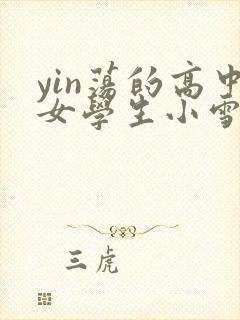 yin蕩的高中
女學生小雪
三虎